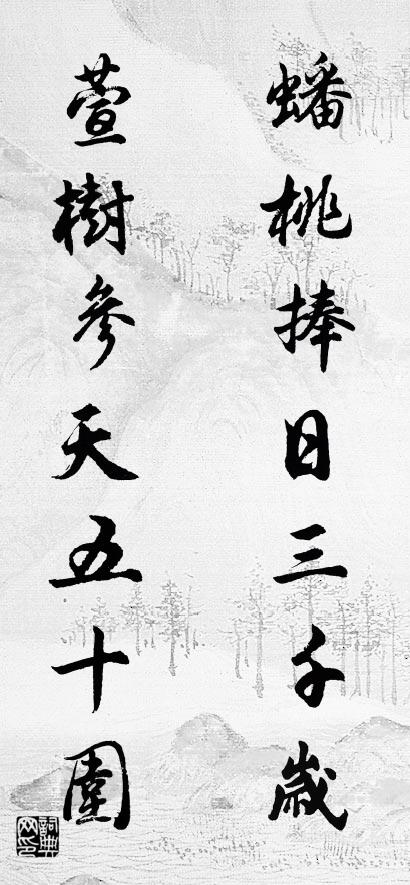 蟠桃捧日三千歲
萱樹參天五十圍
詞典网印